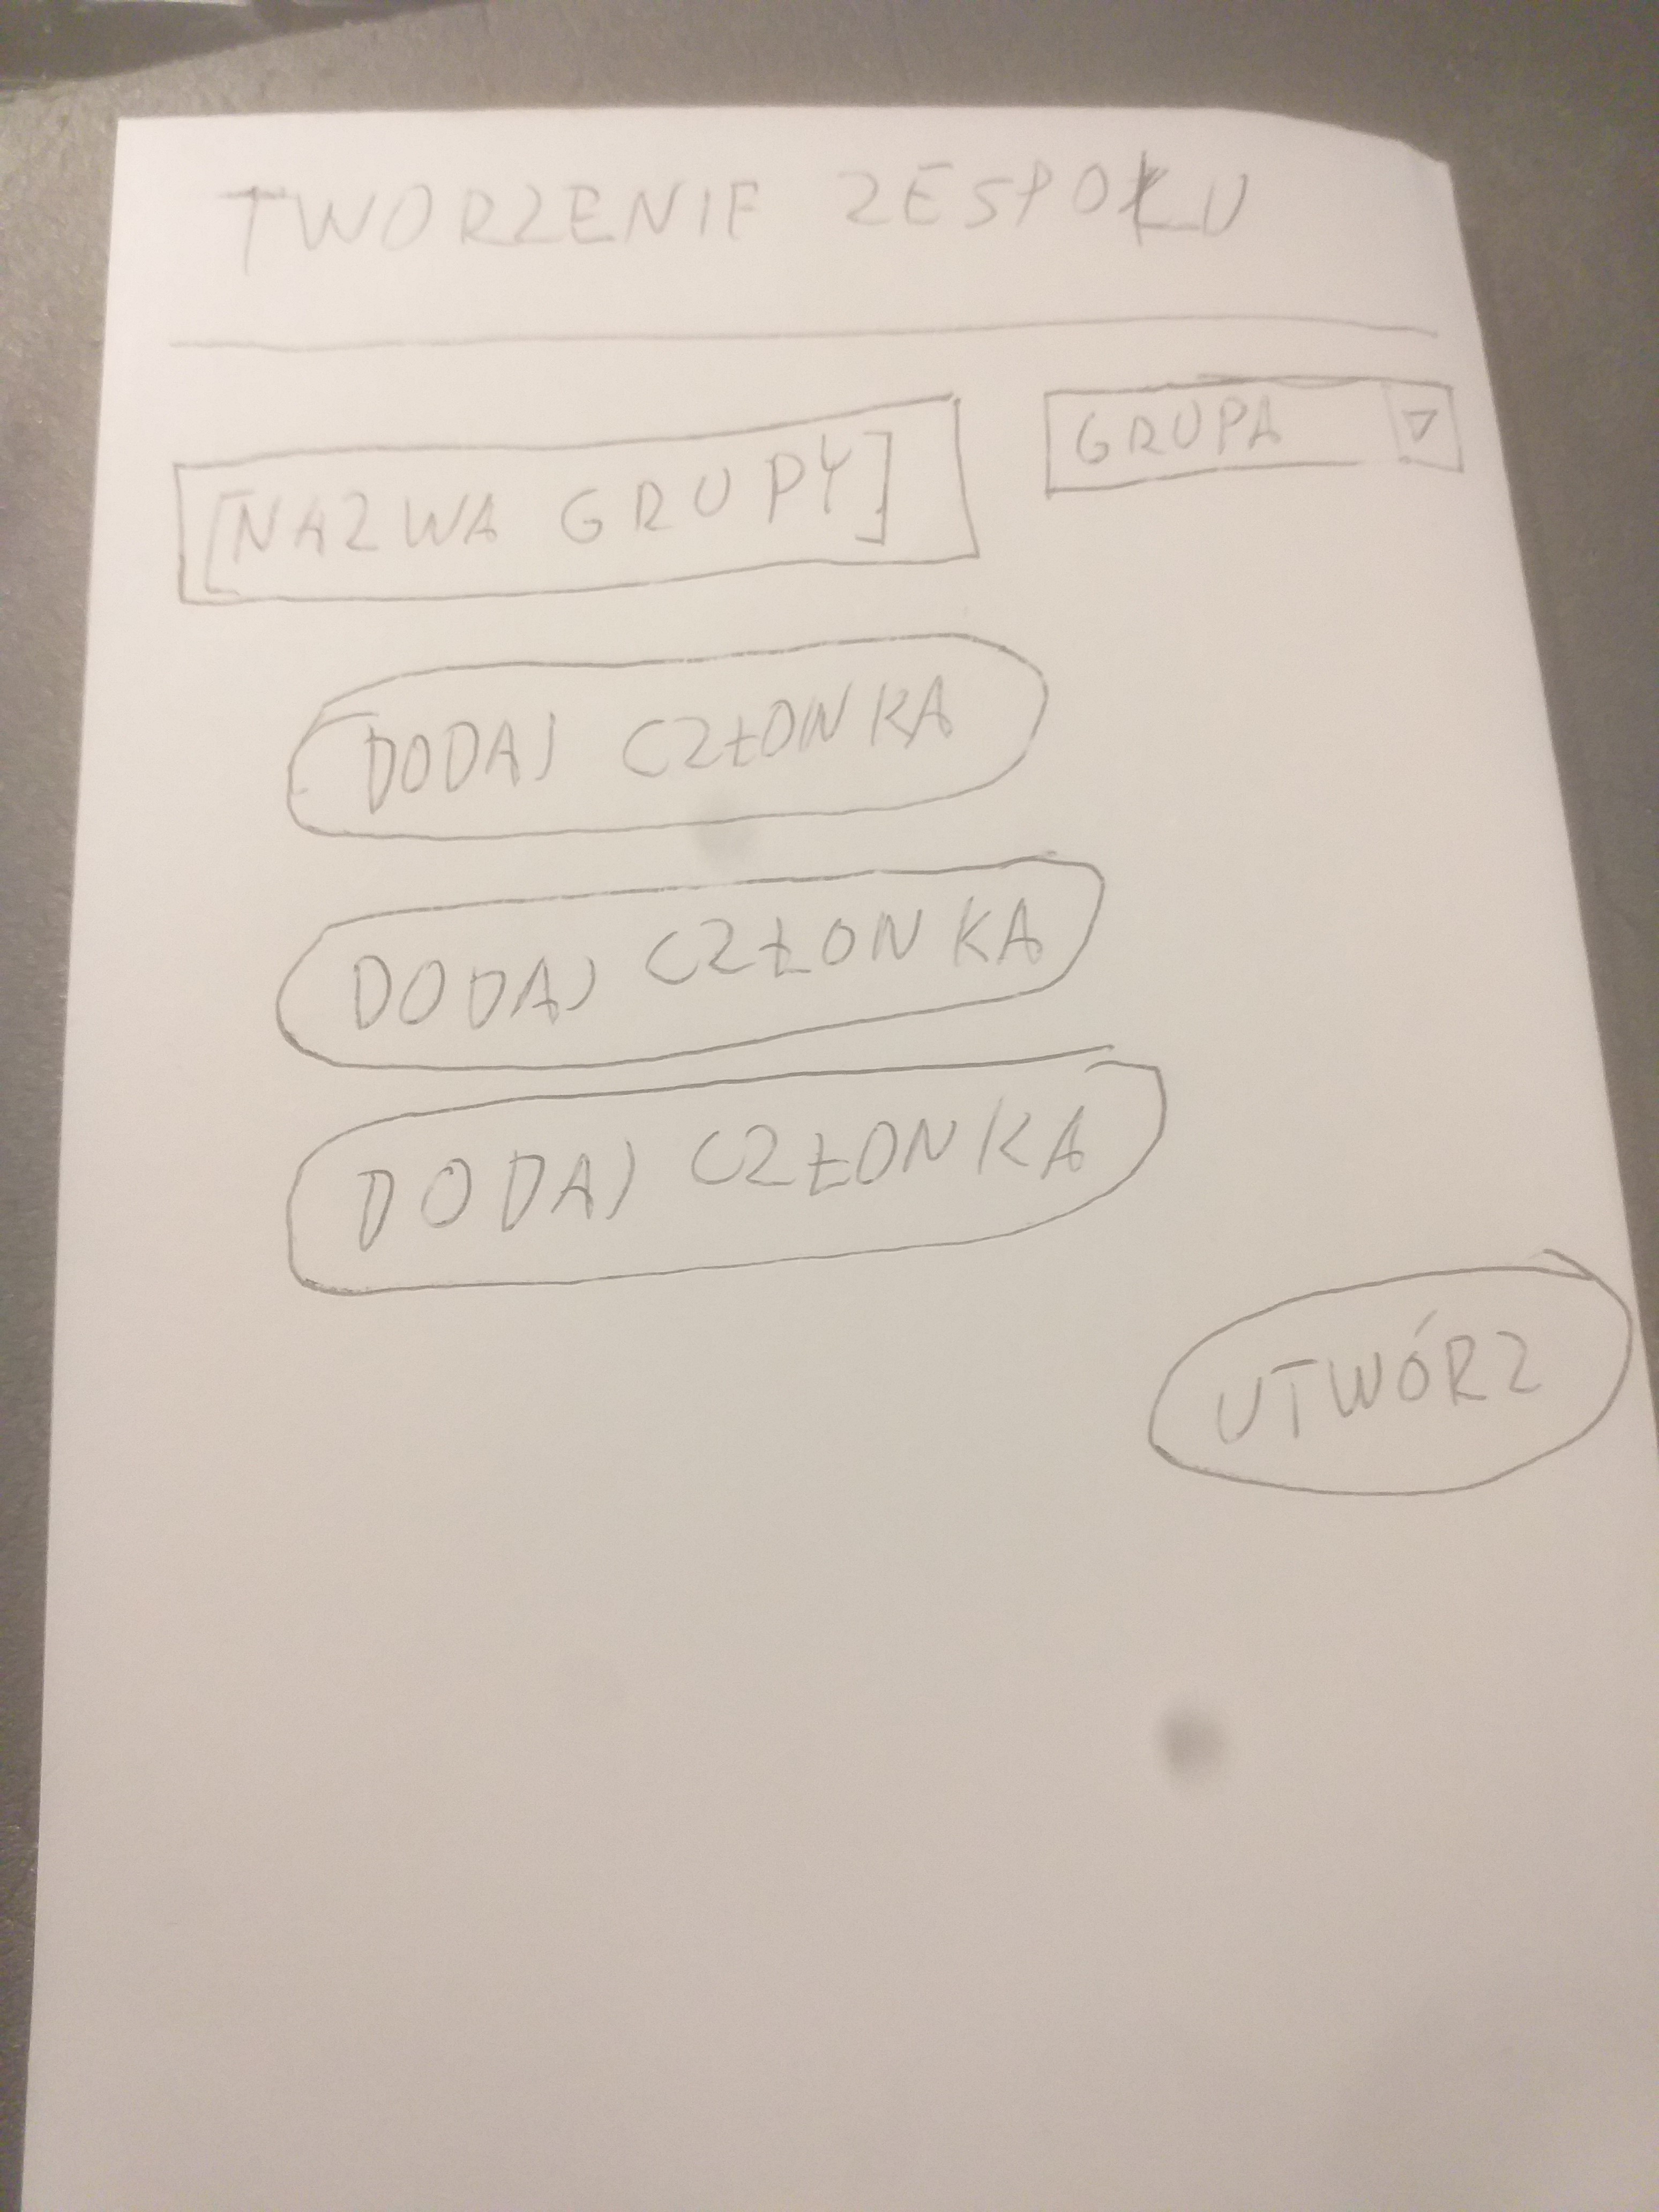 TWORZENIE ZESPOŁU
[NAZWA GRUPY]
GRUPA
DODAJ CZŁONKA
DODAJ CZŁONKA
DODAJ CZŁONKA
UTWÓRZ